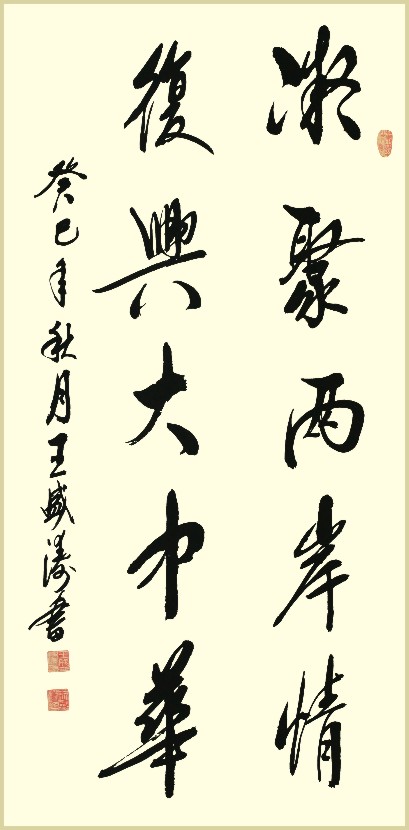 凝聚两岸情
復興大中華
癸巳年秋月王盛濤書